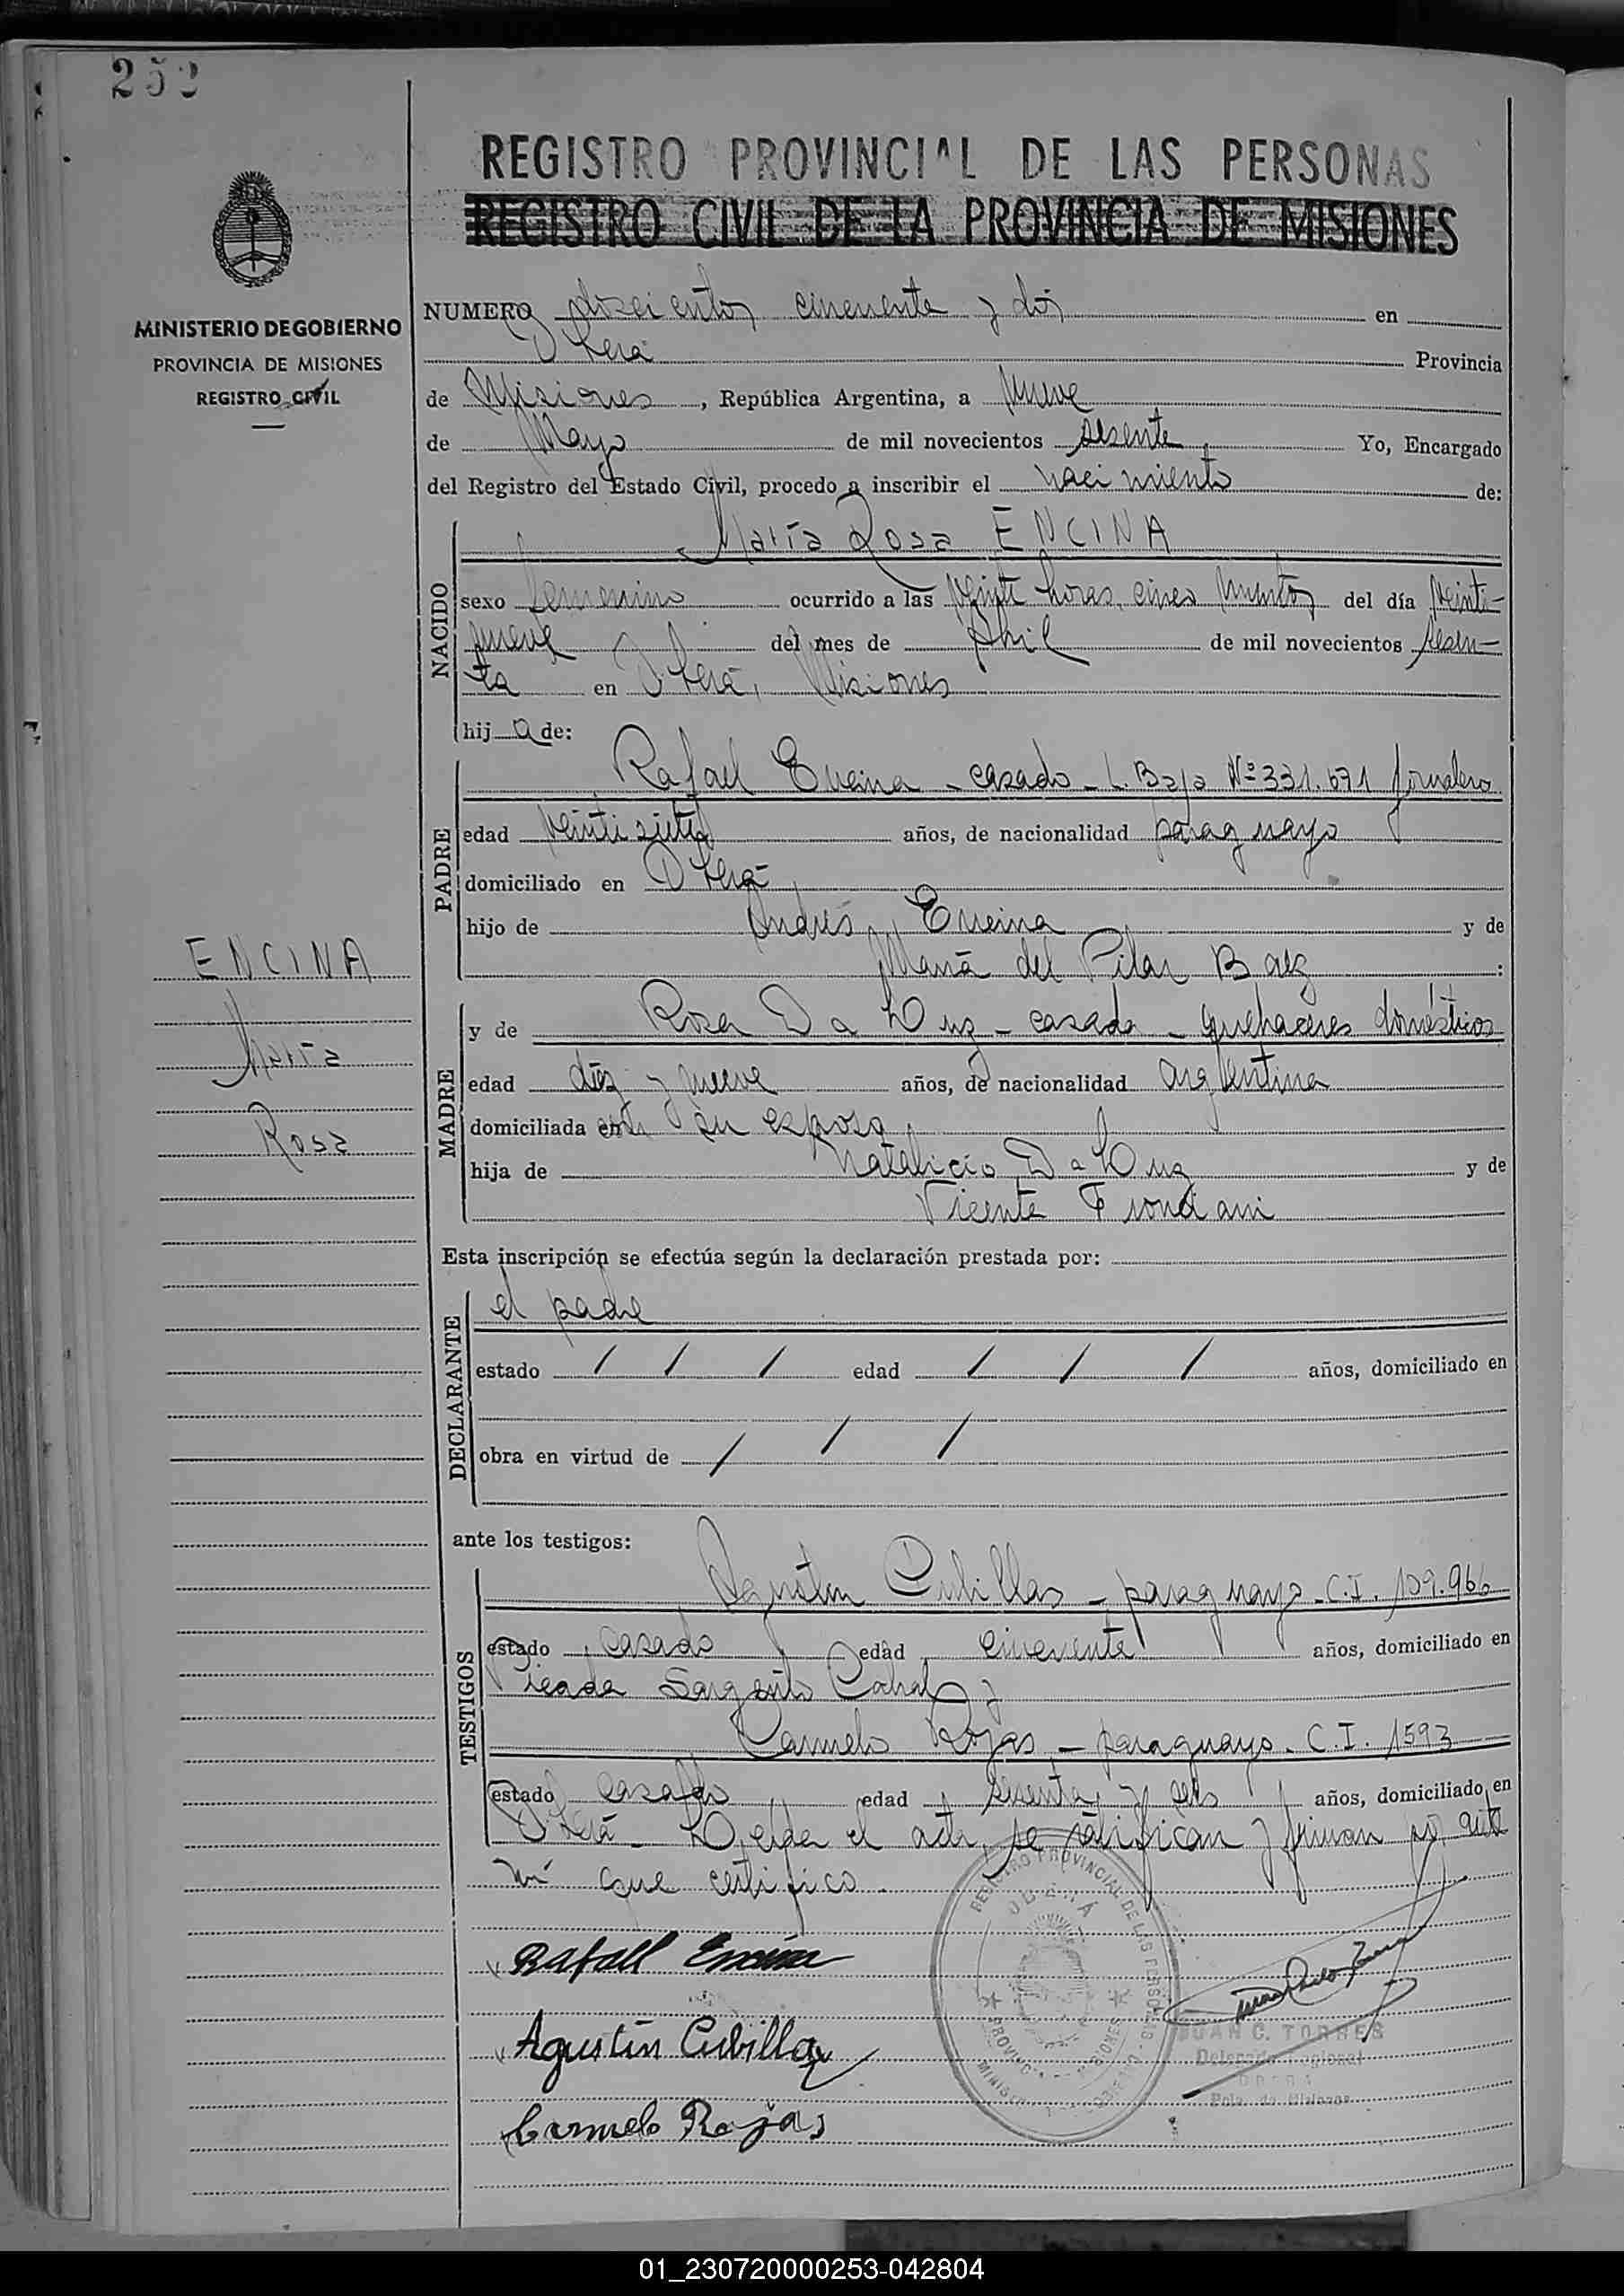 252
REGISTRO PROVINCIAL DE LAS PERSONAS
REGISTRO CIVIL DE LA PROVINCIA DE MISIONES
MINISTERIO DE GOBIERNO
PROVINCIA DE MISIONES
REGISTRO CIVIL
NUMERO doscientos cincuenta y dos en
Oberá Provincia
de Misiones, República Argentina, a nueve
de Mayo de mil novecientos sesenta Yo, Encargado
del Registro del Estado Civil, procedo a inscribir el nacimiento de:
NACIDO
María Rosa ENCINA
sexo femenino ocurrido a las veinte horas, cinco minutos del día veinti-
nueve del mes de Abril de mil novecientos sesen-
ta en Oberá, Misiones
hija de:
PADRE
Rafael Encina - casado - L. Baja Nº 331.671 jornalero
edad veintisiete años, de nacionalidad paraguayo
domiciliado en Oberá
hijo de Andrés Encina y de
María del Pilar Baez :
ENCINA
María
Rosa
MADRE
y de Rosa Da Luz - casada - quehaceres domésticos
edad diez y nueve años, de nacionalidad argentina
domiciliada con su esposo
hija de Natalicio Da Luz y de
Vicenta
Esta inscripción se efectúa según la declaración prestada por:
DECLARANTE
el padre
estado / / / edad / / / años, domiciliado en
obra en virtud de / / /
ante los testigos:
TESTIGOS
Agustín Cubillas - paraguayo - C.I. 109.966
estado casado edad cincuenta años, domiciliado en
Picada Sargento Cabral y
Carmelo Rojas - paraguayo - C.I. 1593
estado casado edad sesenta y seis años, domiciliado en
Oberá - Leída el acta, se ratifican y firman por ante
mí que certifico.
Rafael Encina
Agustín Cubilla
Carmelo Rojas
REGISTRO PROVINCIAL DE LAS PERSONAS
OBERÁ
JUAN C. TORRES
Delegado Regional
OBERA
Pcia. de Misiones
01_230720000253-042804